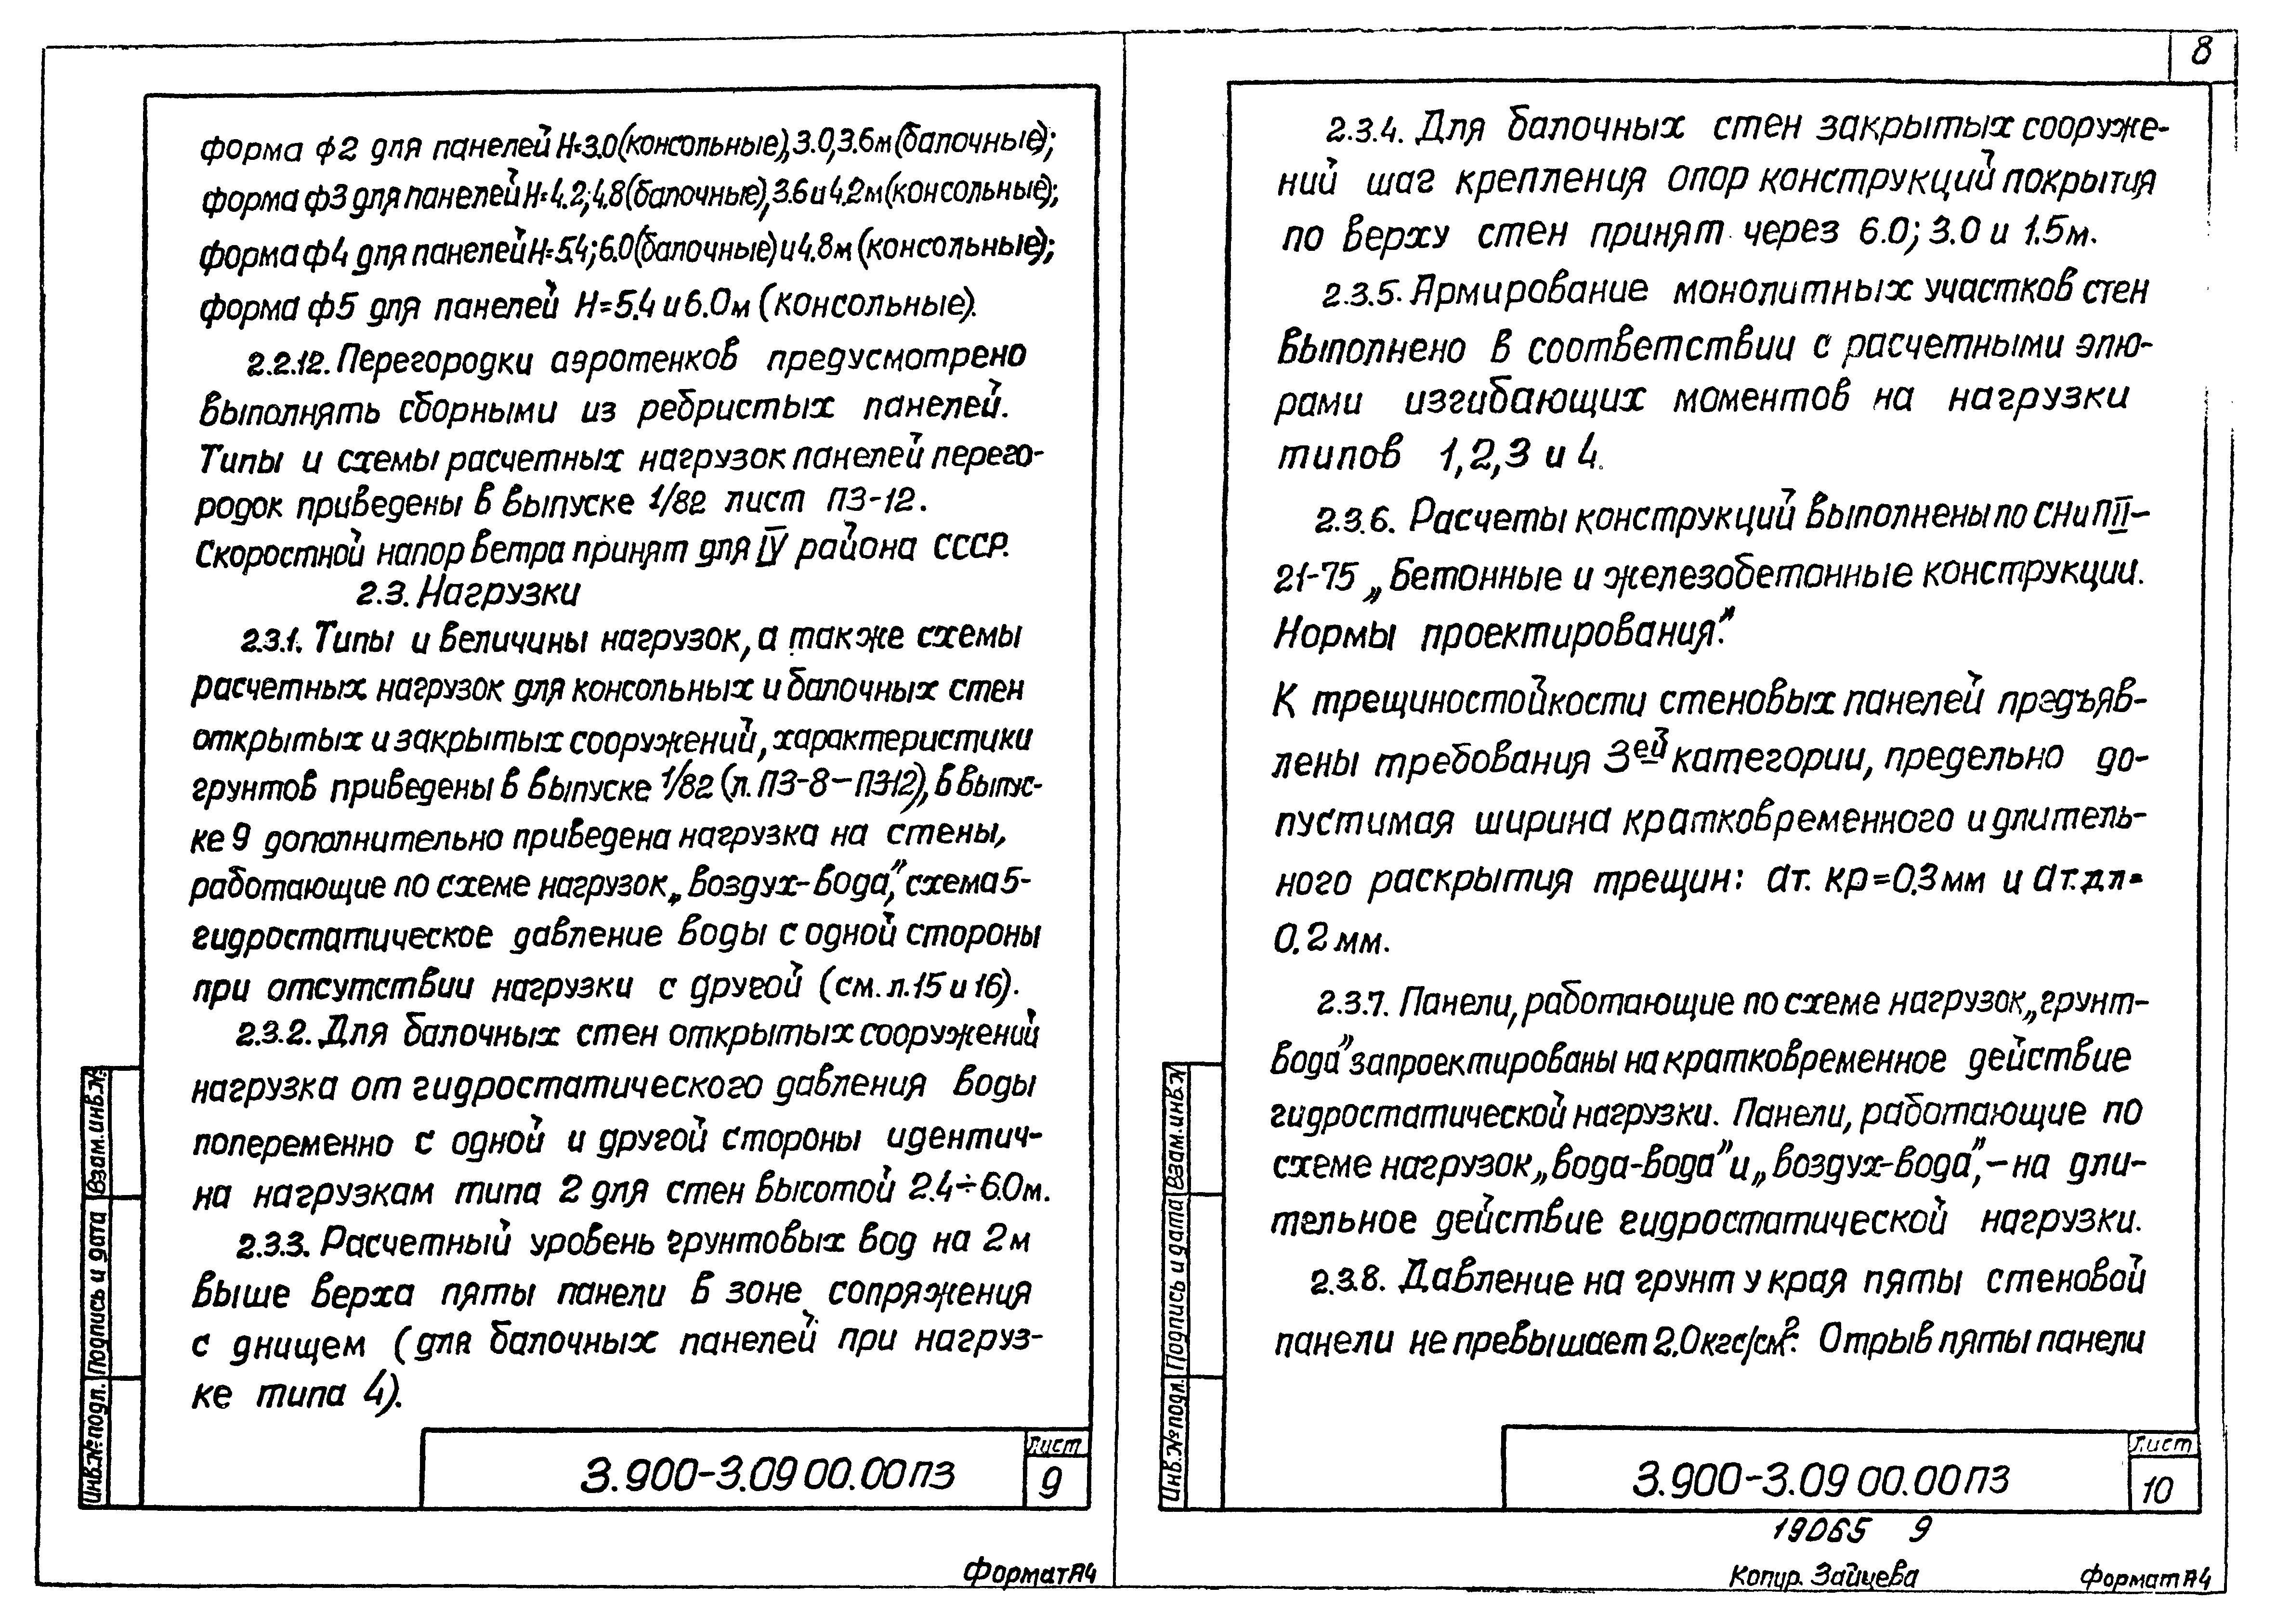 форма ф2 для панелей Н=3.0(консольные),3.0,3.6м(балочные);
форма ф3 для панелей Н=4.2;4.8(балочные),3.6 и 4.2м(консольные);
форма ф4 для панелей Н=5.4;6.0(балочные) и 4.8м (консольные);
форма ф5 для панелей Н=5.4 и 6.0м (консольные).
2.2.12. Перегородки аэротенков предусмотрено
выполнять сборными из ребристых панелей.
Типы и схемы расчетных нагрузок панелей перего-
родок приведены в выпуске 1/82 лист ПЗ-12.
Скоростной напор ветра принят для IV района СССР.
2.3. Нагрузки
2.3.1. Типы и величины нагрузок, а также схемы
расчетных нагрузок для консольных и балочных стен
открытых и закрытых сооружений, характеристики
грунтов приведены в выпуске 1/82 (л. ПЗ-8-ПЗ-12), в выпус-
ке 9 дополнительно приведена нагрузка на стены,
работающие по схеме нагрузок „воздух-вода”, схема 5-
гидростатическое давление воды с одной стороны
при отсутствии нагрузки с другой (см. л. 15 и 16).
2.3.2. Для балочных стен открытых сооружений
нагрузка от гидростатического давления воды
попеременно с одной и другой стороны идентич-
на нагрузкам типа 2 для стен высотой 2.4÷6.0м.
2.3.3. Расчетный уровень грунтовых вод на 2м
выше верха пяты панели в зоне сопряжения
с днищем (для балочных панелей при нагруз-
ке типа 4).
Взам.инв.№
Подпись и дата
Инв.№подл.
3.900-3.09 00.00ПЗ
Лист
9
Формат А4
8
2.3.4. Для балочных стен закрытых сооруже-
ний шаг крепления опор конструкций покрытия
по верху стен принят через 6.0; 3.0 и 1.5м.
2.3.5. Армирование монолитных участков стен
выполнено в соответствии с расчетными эпю-
рами изгибающих моментов на нагрузки
типов 1,2,3 и 4.
2.3.6. Расчеты конструкций выполнены по СНиП II-
21-75 „Бетонные и железобетонные конструкции.
Нормы проектирования”.
К трещиностойкости стеновых панелей предъяв-
лены требования 3ей категории, предельно до-
пустимая ширина кратковременного и длитель-
ного раскрытия трещин: ат. кр=0.3мм и ат.дл=
0.2мм.
2.3.7. Панели, работающие по схеме нагрузок „грунт-
вода” запроектированы на кратковременное действие
гидростатической нагрузки. Панели, работающие по
схеме нагрузок „вода-вода” и „воздух-вода”, -на дли-
тельное действие гидростатической нагрузки.
2.3.8. Давление на грунт у края пяты стеновой
панели не превышает 2.0кгс/см². Отрыв пяты панели
Взам.инв.№
Подпись и дата
Инв.№подл.
3.900-3.09 00.00ПЗ
Лист
10
19065 9
Копир. Зайцева
Формат А4